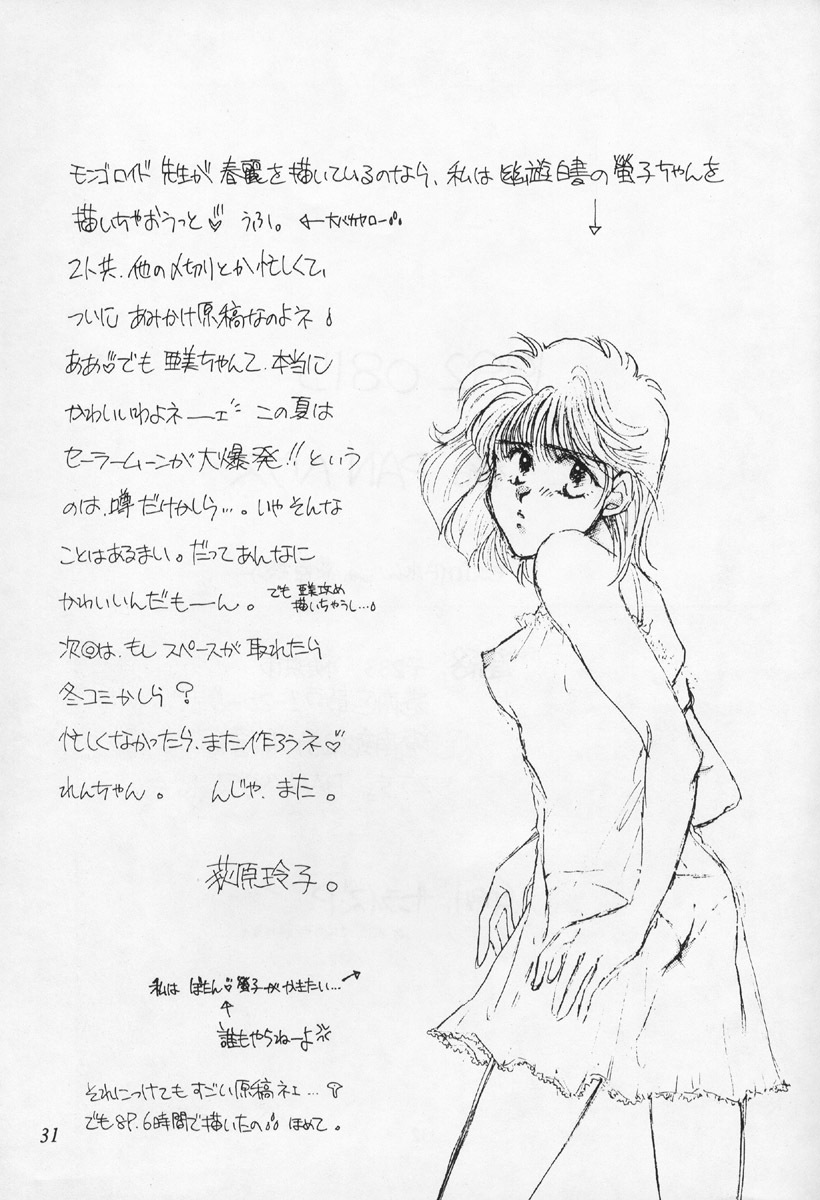 モンゴロイド先生が春麗を描いているのなら、私は幽遊白書の螢子ちゃんを
描いちゃおうっと♡ うふ。 ←大バカヤロー
↓
2人共、他の〆切りとか忙しくて、
ついに あみかけ原稿なのよネ
ああ でも 亜美ちゃんて、本当に
かわいいわよネーェ この夏は
セーラームーンが大爆発!! という
のは、噂だけかしら…。いやそんな
ことはあるまい。だってあんなに
かわいいんだもーん。 でも 亜美攻め
描いちゃうし…。
次回は、もし スペースが 取れたら
冬コミかしら?
忙しくなかったら、また作ろうネ♡
れんちゃん。 んじゃ、また。
荻原玲子。
私は ぼたん♡螢子がかきたい… →
↑
誰もやらねーよ
それにつけてもすごい原稿ネェ…
でも8P、6時間で描いたの ほめて。
31